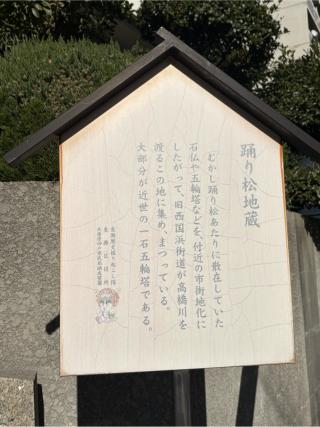 踊り松地蔵
むかし踊り松あたりに散在していた
石仏や五輪塔などを、付近の市街地化に
したがって、旧西国浜街道が高橋川を
渡るこの地に集め、まつっている。
大部分が近世の一石五輪塔である。
東灘歴史掘り起こし隊
東灘区役所